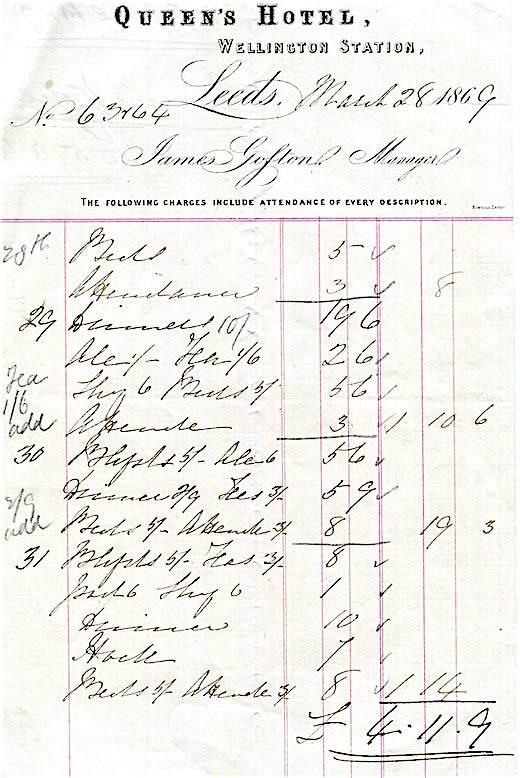 QUEEN'S HOTEL,
WELLINGTON STATION,
Leeds. March 28 1869
No 63264
James Gofton Manager
THE FOLLOWING CHARGES INCLUDE ATTENDANCE OF EVERY DESCRIPTION.
28th Beds 5
Attendance 3 8
29 Dinners 10/- 19 6
Ale 1/- Tea 1/6 2 6
Tea 1/6 add
Beds 5/- 5 6
Attende 3 1 10 6
30 Bkfsts 5/- Ale 6 5 6
Dinner 2/9 Teas 3/- 5 9
2/9 add
Beds 5/- Attende 3/- 8 19 3
31 Bkfsts 5/- Teas 3/- 8
6 6 1
Dinner 10
Hock 7
Beds 5/- Attende 3/- 8 1 14
£ 4. 11. 9